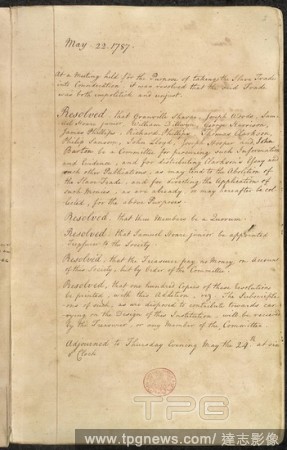 May. 22. 1787.
At a Meeting held for the Purpose of taking the Slave Trade
into Consideration, it was resolved that the said Trade
was both impolitick and unjust.
Resolved, that Granville Sharp, Joseph Woods, Sam-
uel Hoare junior, William Dillwyn, George Harrison,
James Phillips, Richard Phillips, Thomas Clarkson,
Philip Sansom, John Lloyd, Joseph Hooper and John
Barton be a Committee for procuring such Information
and Evidence, and for distributing Clarkson's Essay and
such other Publications, as may tend to the Abolition of
the Slave Trade, and for directing the Application of
such Monies, as are already, or may hereafter be col-
lected, for the above Purposes
Resolved, that three Members be a Quorum.
Resolved, that Samuel Hoare junior be appointed
Treasurer to the Society.
Resolved, that the Treasurer pay no Money on account
of this Society, but by Order of the Committee.
Resolved, that one hundred Copies of these Resolutions
be printed, with this Addition, viz. The Subscriptions
of such, as are disposed to contribute towards car-
rying on the Design of this Institution, will be received
by the Treasurer, or any Member of the Committee
Adjourned to Thursday Evening May the 24th at six
o'Clock
TPG
www.tpgnews.com / 達志影像